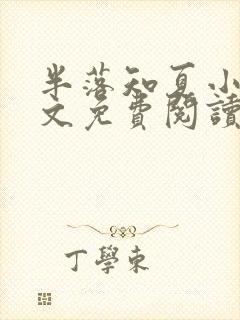 半落知夏小
文免費閱讀
丁學東